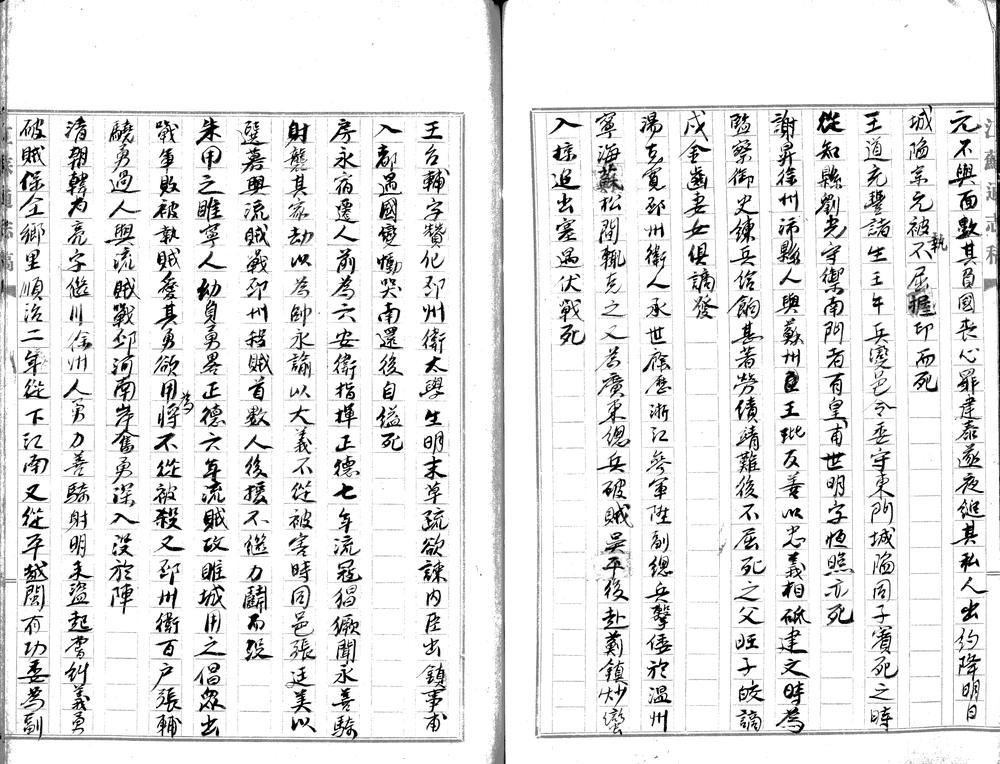 元不與面數其負國喪心罪建泰遂夜縋其私人出約降明日
城陷京元被執不屈握印而死
王道充豐諸生壬午兵變邑令委守東門城陷同子賓死之時
從知縣劉光守禦南門者有皇甫世明字恒照亦死
謝昇徐州沛縣人與蘇州王玭友善以忠義相砥建文時為
監察御史練兵給餉甚著勞績靖難後不屈死之父旺子皎謫
戍金齒妻女俱謫發
湯克寬邳州衛人承世廕歷浙江參軍陞副總兵擊倭於溫州
寧海蘇松間執克之又為廣東總兵破賊吳平後赴薊鎮炒蠻
入掠追出塞遇伏戰死
王台輔字贊化邳州衛太學生明末草疏欲諫內臣出鎮事甫
入都遇國變慟哭南還後自縊死
房永宿遷人前為六安衛指揮正德七年流寇猖獗聞永善騎
射襲其家劫以為帥永諭以大義不從被害時同邑張廷美以
避暑與流賊戰邳州殺賊首數人後援不繼力鬭而歿
朱用之睢寧人幼負勇畧正德六年流賊攻睢城用之倡眾出
戰爭敗被執賊愛其勇欲用為將不從被殺又邳州衛百户張輔
驍勇過人與流賊戰邳河南岸奮勇深入沒於陣
清韓為亮字繼川徐州人勇力善騎射明末盜起嘗糾義勇
破賊保全鄉里順治二年從下江南又從平越閩有功委為副
江蘇通志稿